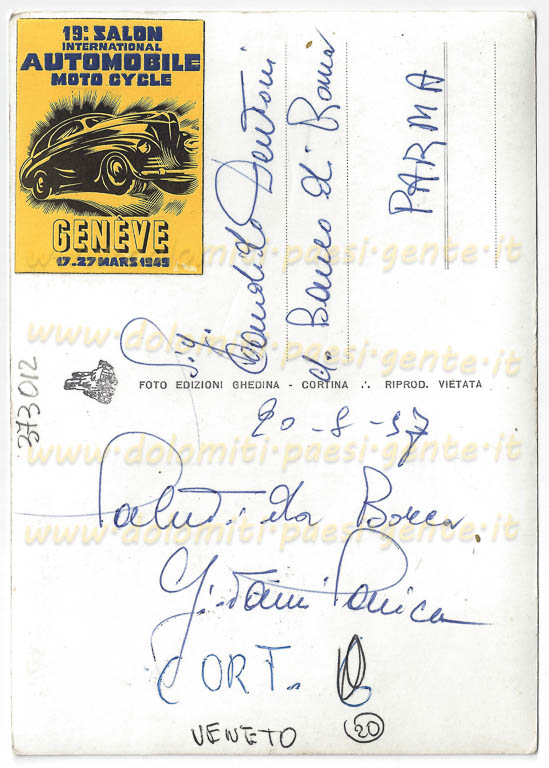 19e SALON
INTERNATIONAL
AUTOMOBILE
MOTO CYCLE
GENÈVE
17-27 MARS 1949
Sig.
Candido
c/o Banco di Roma
PARMA
www.dolomiti-paesi-gente.it
www.dolomiti-paesi-gente.it
373012
FOTO EDIZIONI GHEDINA - CORTINA ∴ RIPROD. VIETATA
20-8-57
www.dolomiti-paesi-gente.it
Saluti da Borca
www.dolomiti-paesi-gente.it
CORT.
VENETO
20